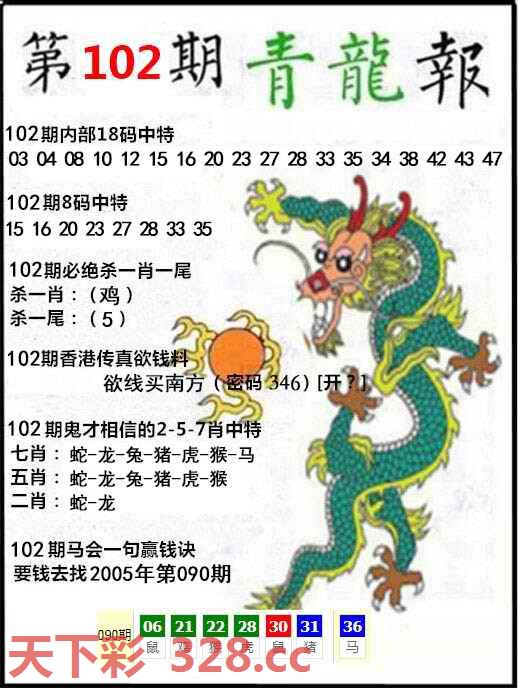 第102期青龍報
102期内部18码中特
03 04 08 10 12 15 16 20 23 27 28 33 35 34 38 42 43 47
102期8码中特
15 16 20 23 27 28 33 35
102期必绝杀一肖一尾
杀一肖：（鸡）
杀一尾：（5）
102期香港传真欲钱料
欲线买南方（密码 346）[开？]
102期鬼才相信的2-5-7肖中特
七肖：蛇-龙-兔-猪-虎-猴-马
五肖：蛇-龙-兔-猪-虎-猴
二肖：蛇-龙
102期马会一句赢钱诀
要钱去找2005年第090期
090期 06 21 22 28 30 31 36
鼠 鸡 猴 虎 鼠 猪 马
天下彩 328.cc